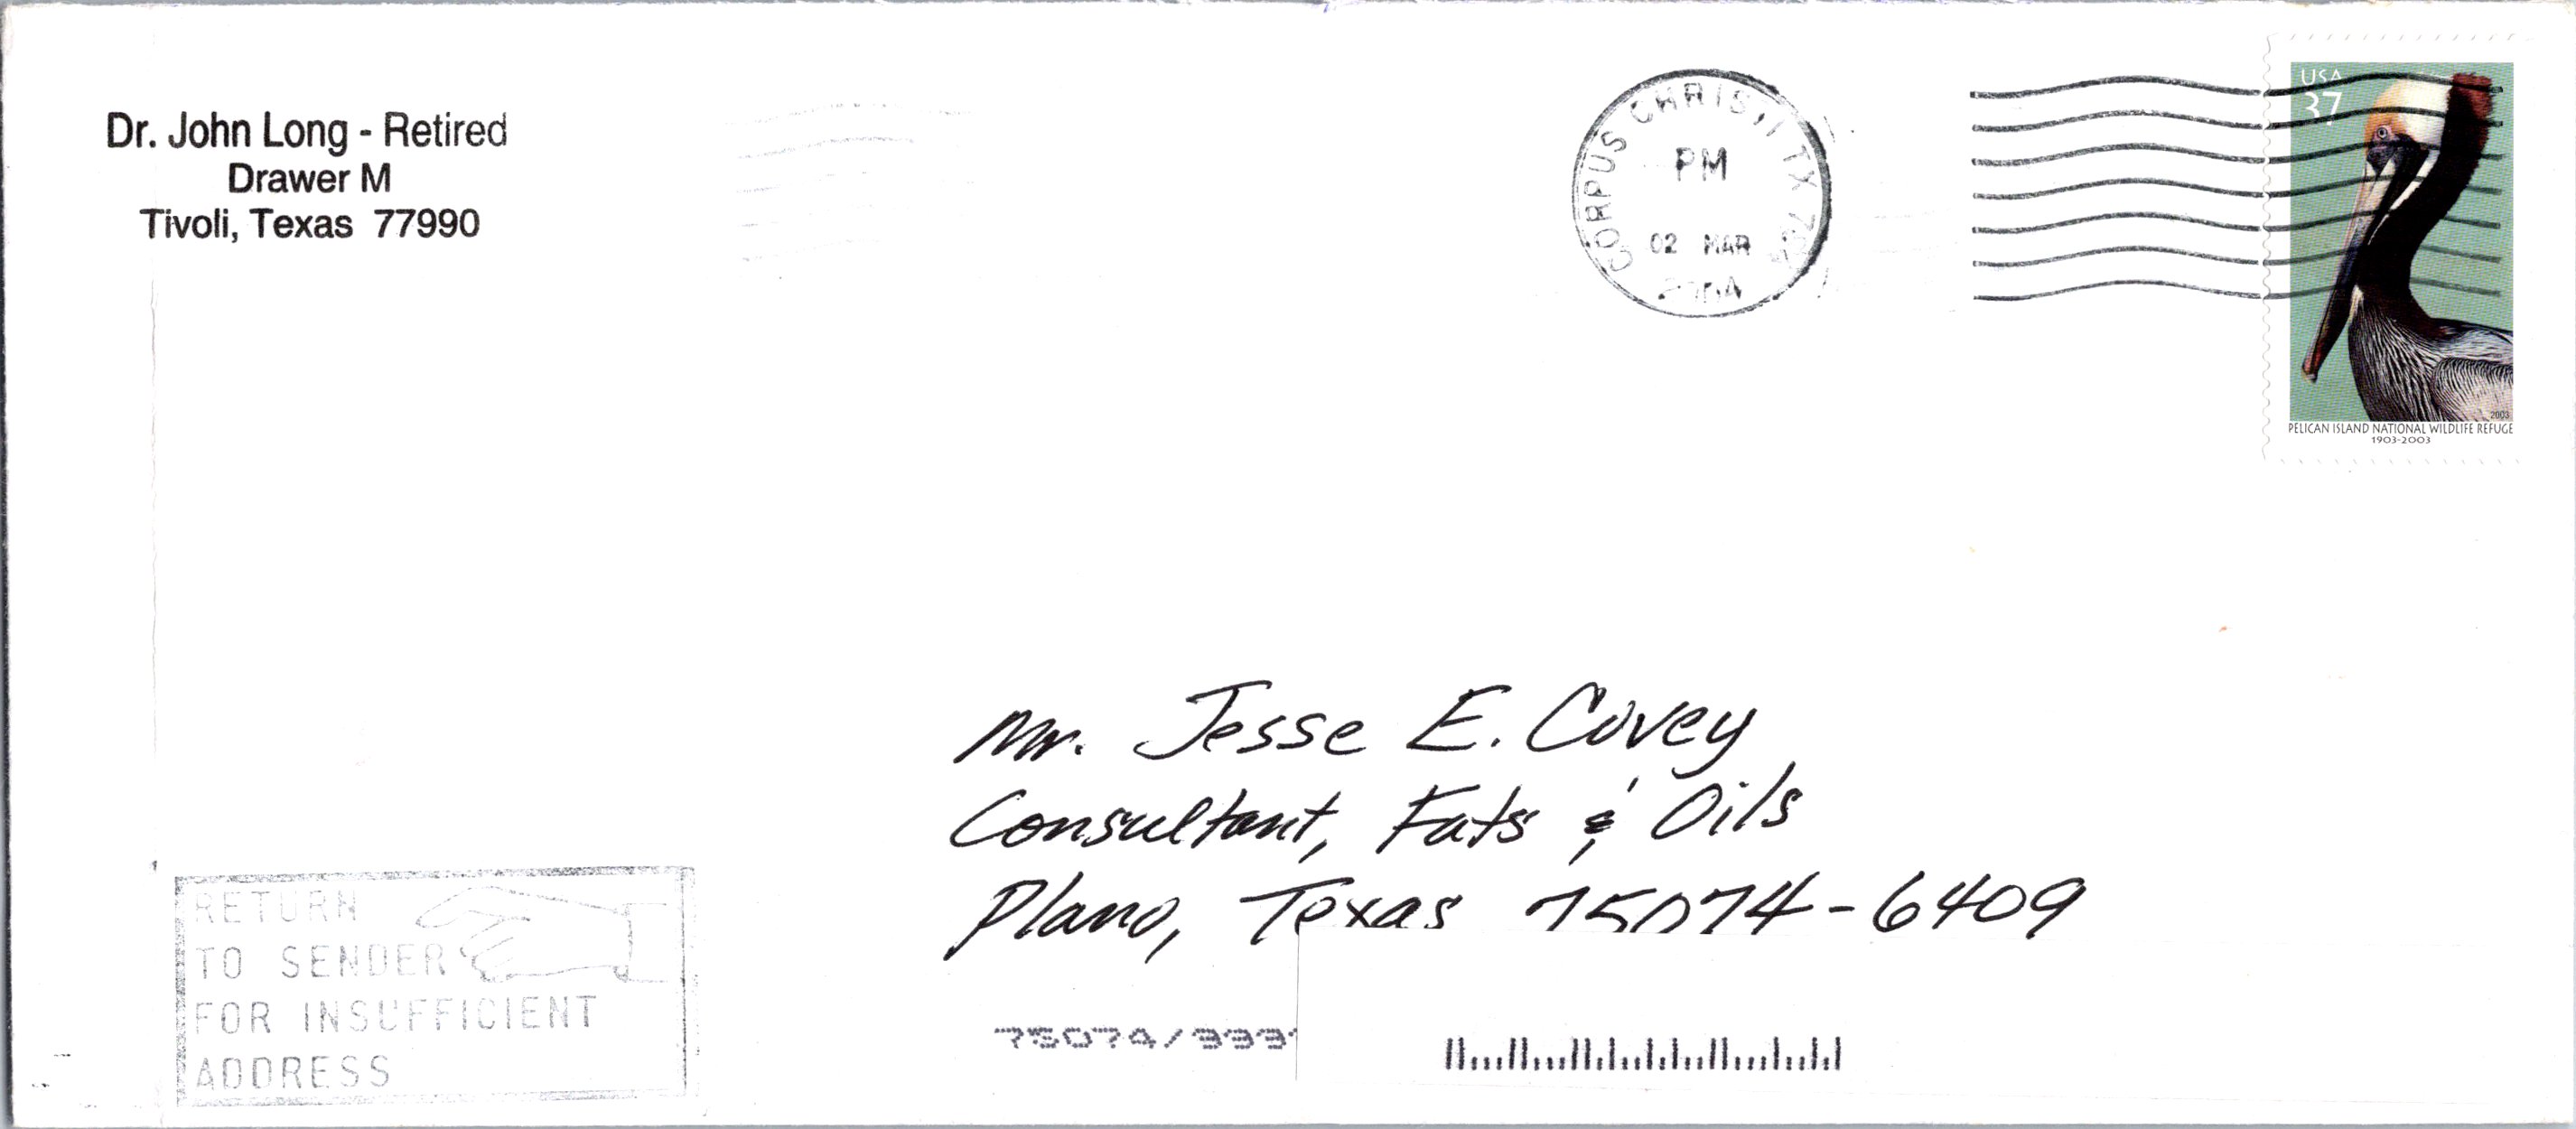 Dr. John Long - Retired
Drawer M
Tivoli, Texas 77990
CORPUS CHRISTI TX
PM
02 MAR
2004
USA
37
2003
PELICAN ISLAND NATIONAL WILDLIFE REFUGE
1903-2003
Mr. Jesse E. Covey
Consultant, Fats & Oils
Plano, Texas 75074-6409
RETURN
TO SENDER
FOR INSUFFICIENT
ADDRESS
75074/999